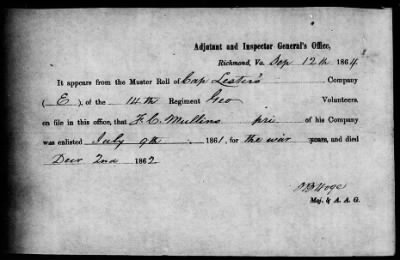 Adjutant and Inspector General's Office,
Richmond, Va. Sep 12th 1864
It appears from the Muster Roll of Cap Lester's Company
( E ), of the 14th Regiment Geo Volunteers.
on file in this office, that F. C. Mullins pri of his Company
was enlisted July 9th 1861, for the war years, and died
Decr 2nd 1862
Hoge
Maj. & A. A. G.